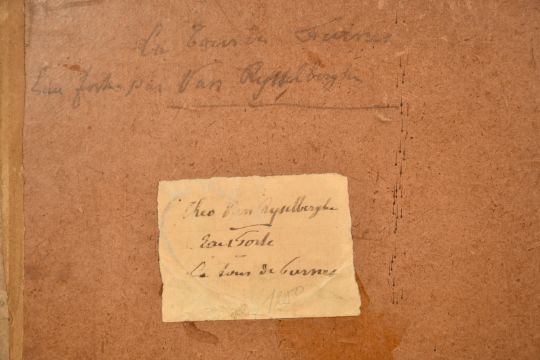 La Tour de Furnes
Eau forte par Van Rysselberghe
Theo Van Rysselberghe
Eau Forte
La Tour de Furnes